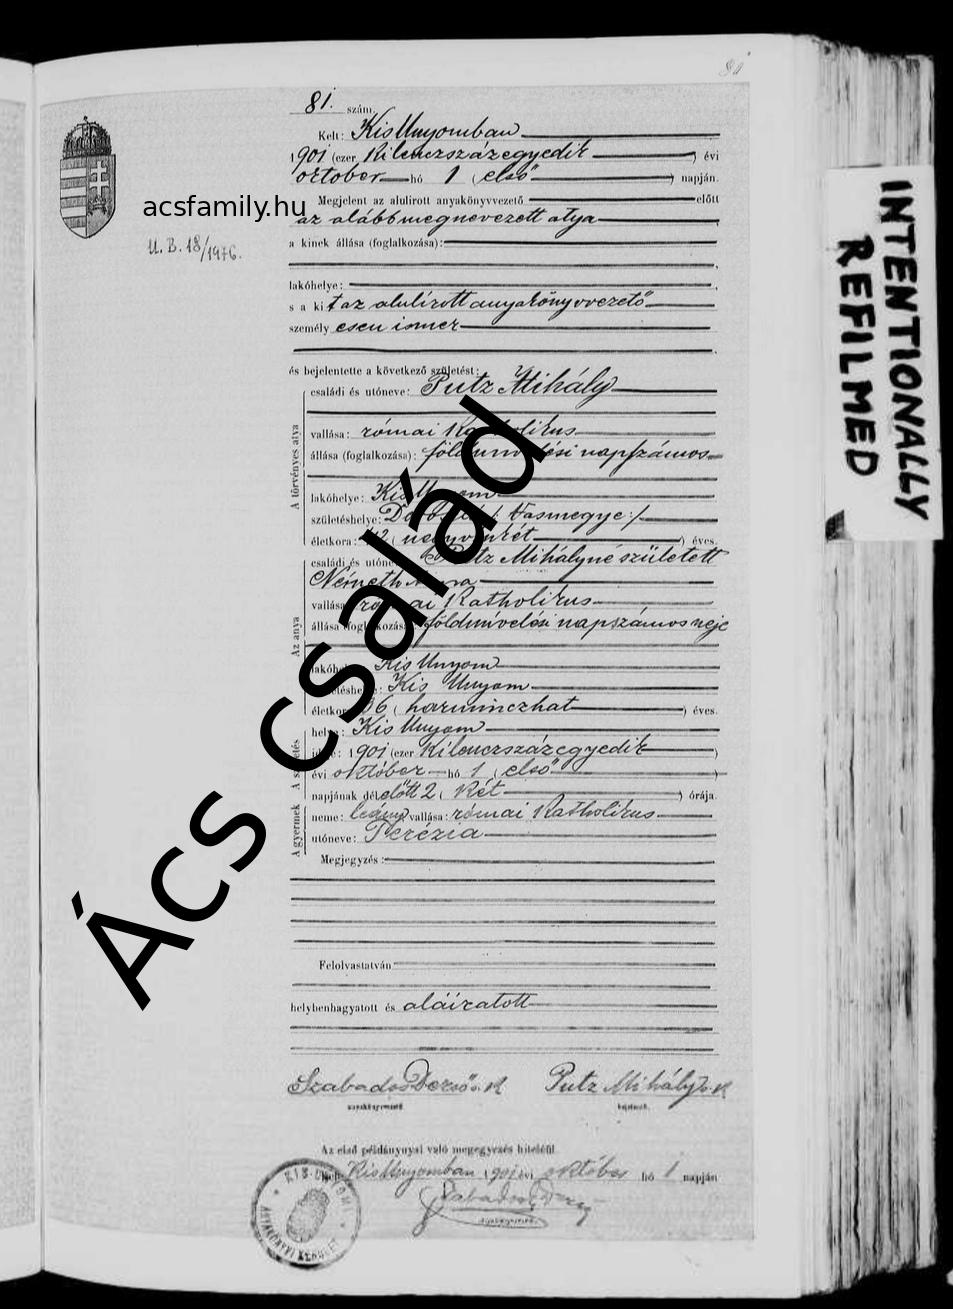 81
81. szám.
Kelt: Kis Unyomban
1901 (ezer kilenczszázegyedik) évi
október hó 1 (első) napján.
Megjelent az alulirott anyakönyvvezető előtt
acsfamily.hu
az alább megnevezett atya
U. B. 18/1976.
a kinek állása (foglalkozása):
lakóhelye:
s a kit az alulírott anyakönyvvezető
személyesen ismer
és bejelentette a következő születést:
A törvényes atya
családi és utóneve: Putz Mihály
vallása: római Katholikus
állása (foglalkozása): földmivelési napszámos
lakóhelye: Kis Unyom
születéshelye: /: Vasmegye :/
életkora: 42 (negyvenkét) éves.
Az anya
családi és utóneve: Putz Mihályné született
Németh
vallása: római Katholikus
állása (foglalkozása): földmivelési napszámos neje
lakóhelye: Kis Unyom
születéshelye: Kis Unyom
életkora: 36 (harminczhat) éves.
A születés
helye: Kis Unyom
ideje: 1901 (ezer kilenczszázegyedik)
évi október hó 1 (első)
napjának délelőtt 2 (két) órája.
A gyermek
neme: leány vallása: római Katholikus
utóneve: Terézia
Megjegyzés:
Felolvastatván
helybenhagyatott és aláiratott
Szabados Dezső s. k. Putz Mihály s. k.
anyakönyvvezető. bejelentő.
Az első példánynyal való megegyezés hiteléül.
Kelt Kis Unyomban 1901 évi október hó 1 napján
Szabados Dezső
anyakönyvvezető.
KIS-UNYOMI
ANYAKÖNYVI KERÜLET
Ács család
INTENTIONALLY
REFILMED